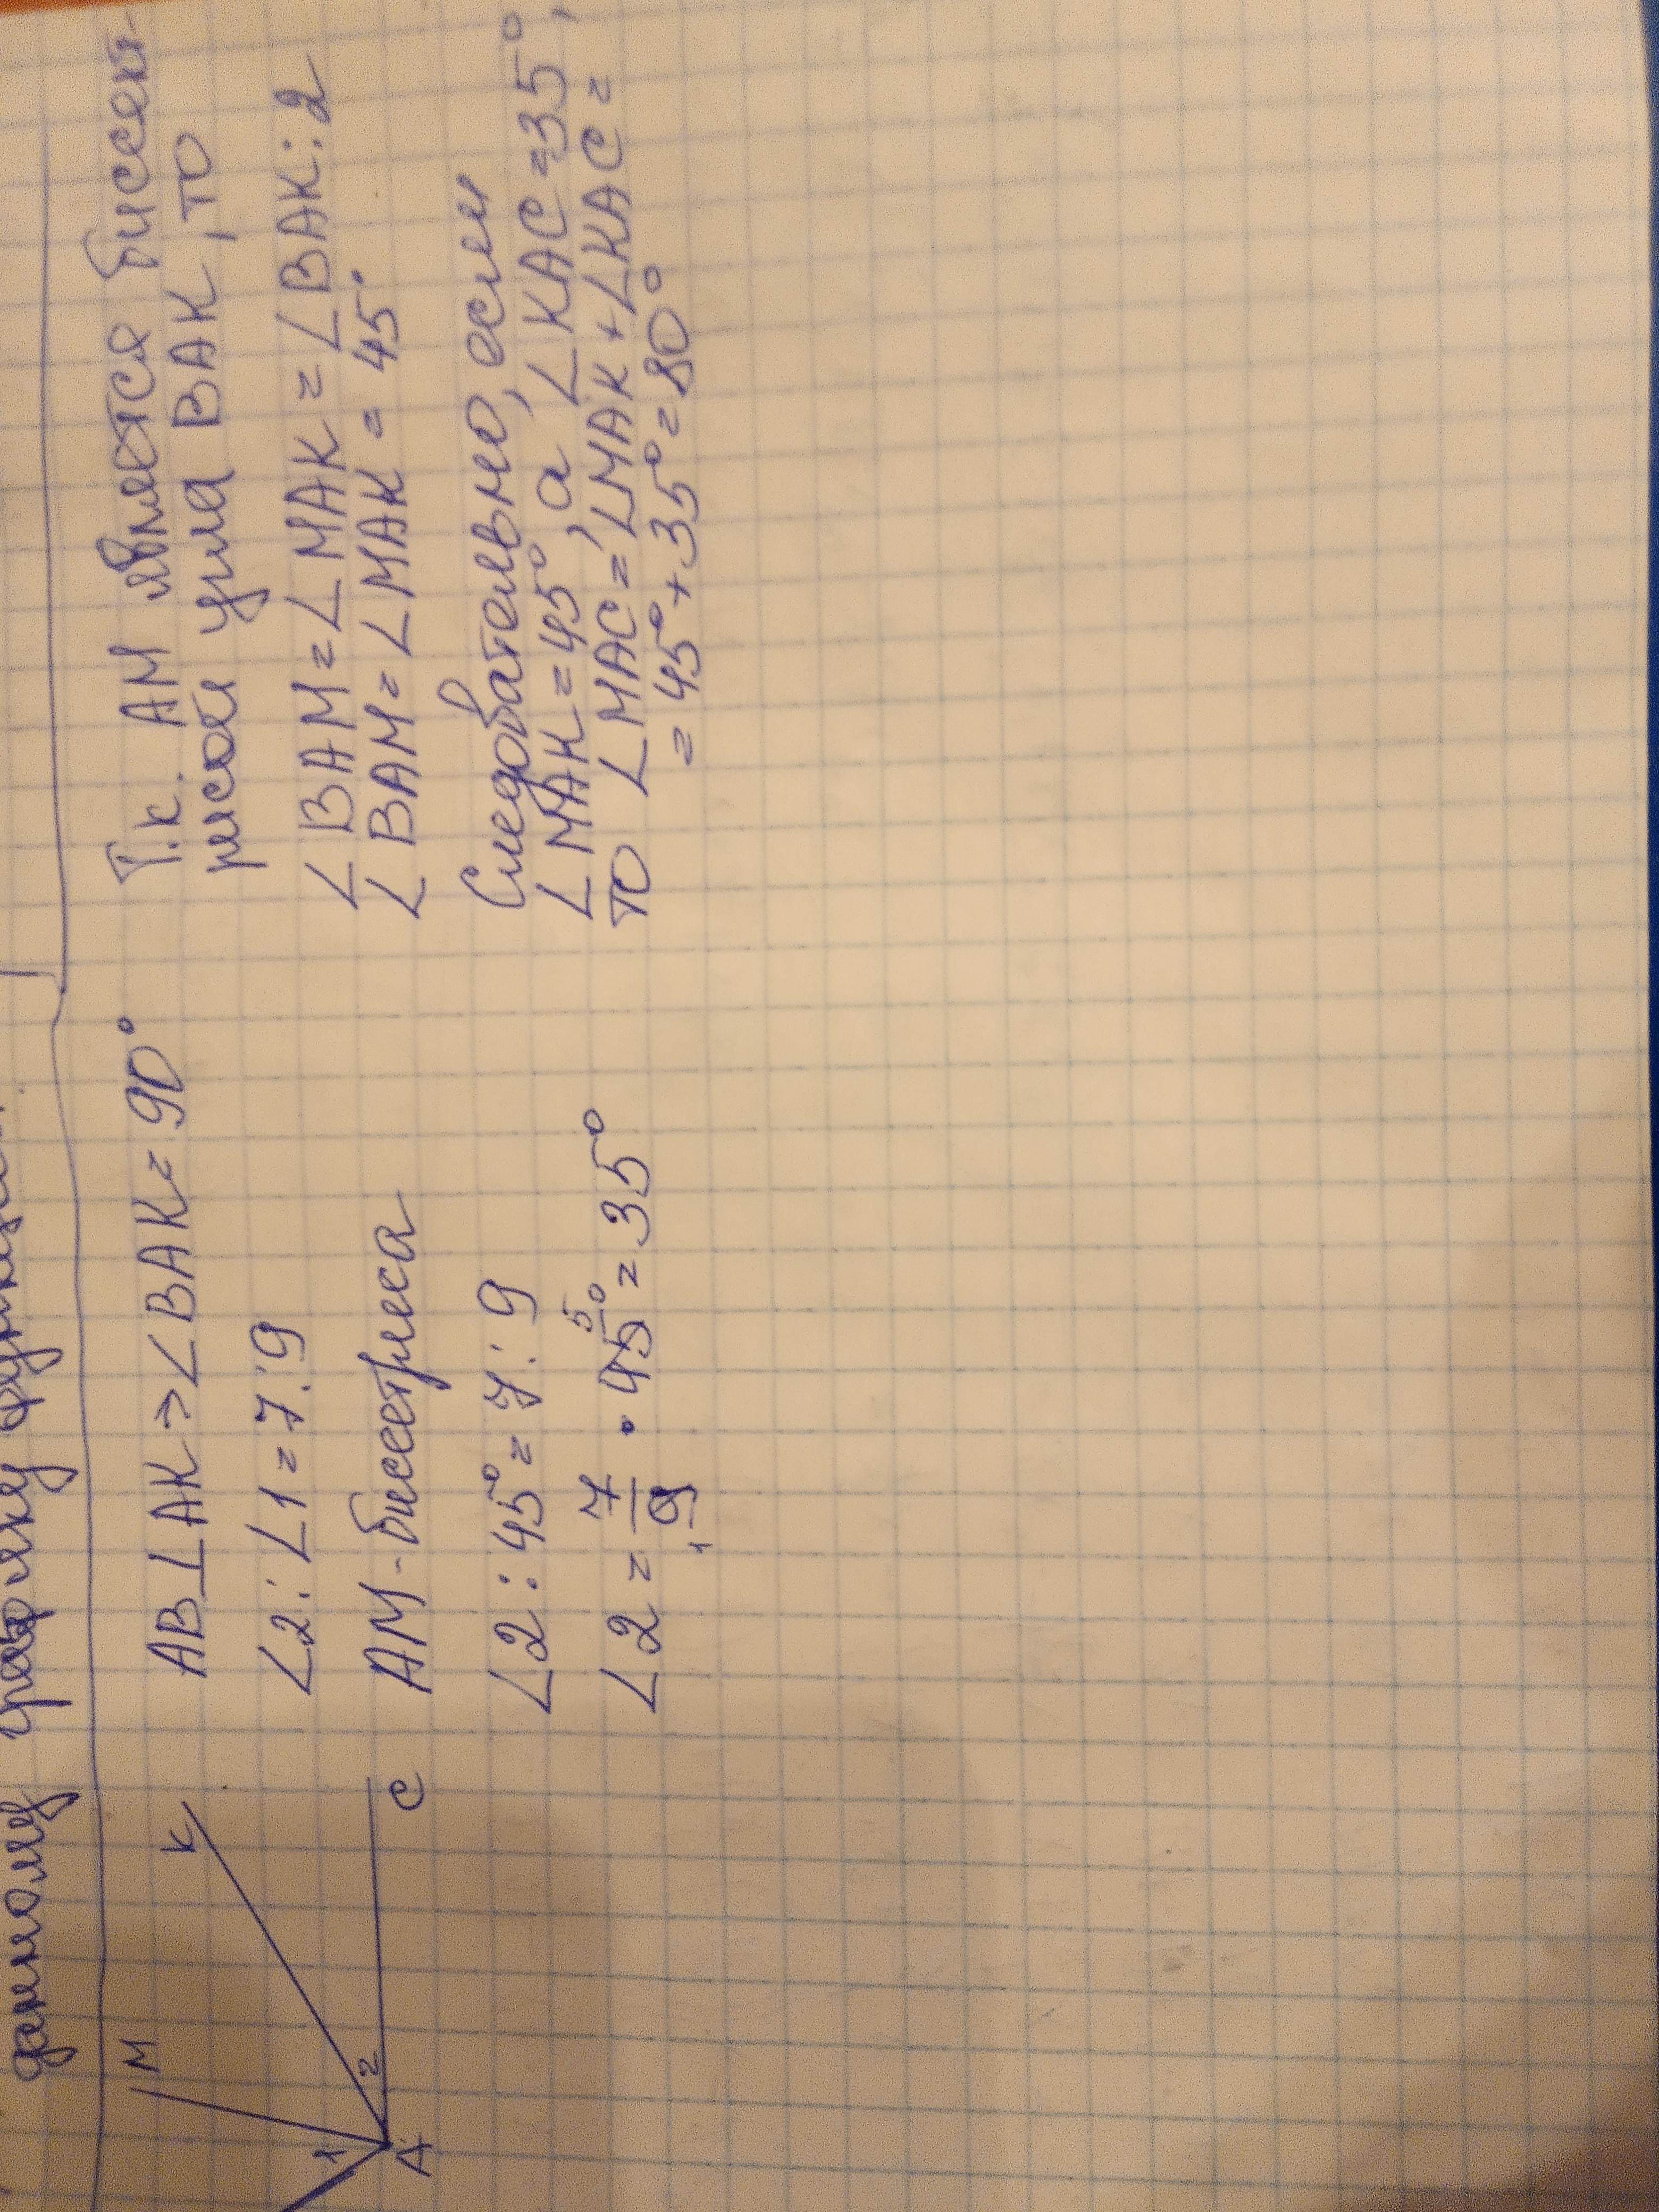 данному графику функции.
M
K
1
2
A
C
AB⊥AK => ∠BAK = 90°
∠2 : ∠1 = 7 : 9
AM - биссетриса
∠2 : 45° = 7 : 9
∠2 = 7/9 · 45° = 35°
5
1
Т.к. AM является биссект-
рисой угла BAK, то
∠BAM = ∠MAK = ∠BAK : 2
∠BAM = ∠MAK = 45°
Следовательно, если
∠MAK = 45°, а ∠KAC = 35°,
то ∠MAC = ∠MAK + ∠KAC =
= 45° + 35° = 80°